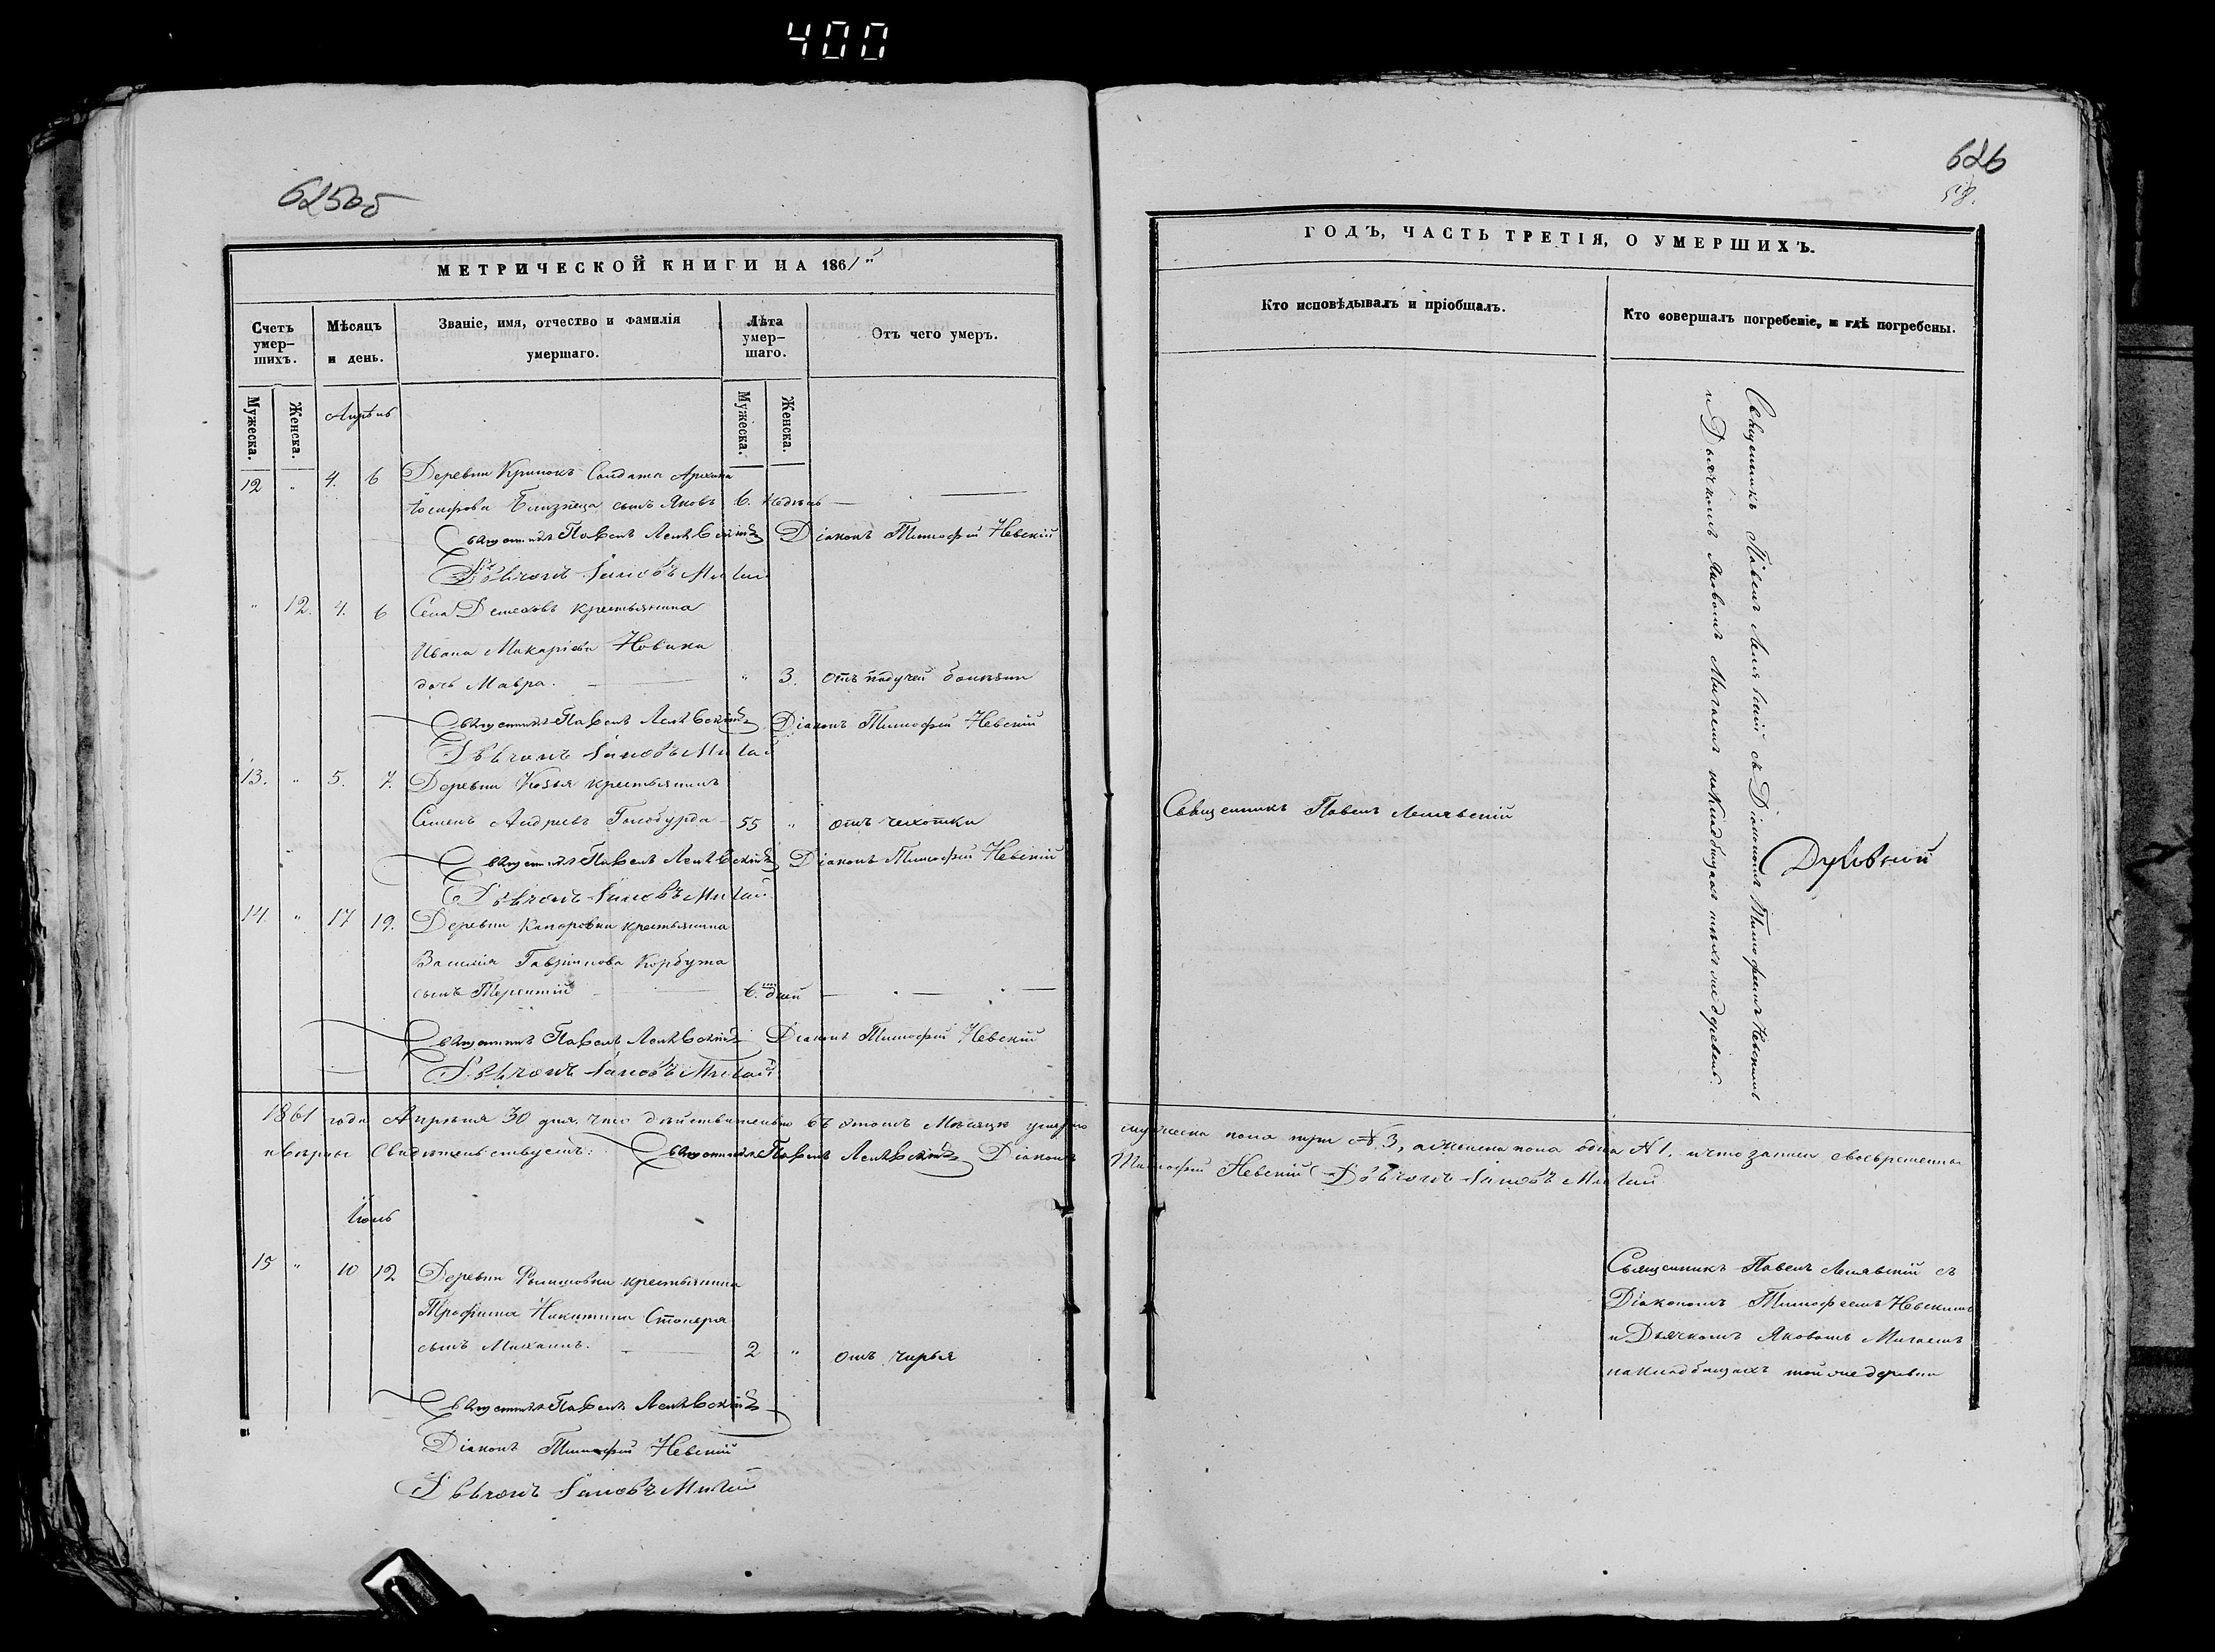 400
625об
МЕТРИЧЕСКОЙ КНИГИ НА 1861й
Счетъ умер-шихъ.
Мѣсяцъ и день.
Званіе, имя, отчество и фамилія умершаго.
Лѣта умер-шаго.
Отъ чего умеръ.
Мужеска.
Женска.
Мужеска.
Женска.
Апрѣль
12 " 4. 6 Деревни Кринокъ Солдата
Іосифова Близнеца сынъ Яковъ 6. недѣль —
Священникъ Павелъ Діаконъ Тимофей Невскій
Дьячокъ Яковъ Мигай
" 12. 4. 6 Села крестьянина
Ивана Макаріева Новика
дочь Мавра. — " 3. отъ падучей болѣзни
Священникъ Павелъ Діаконъ Тимофей Невскій
Дьячокъ Яковъ Мигай
13. " 5. 7. Деревни Козья крестьянинъ
Семенъ Андреевъ Голобурда 55 " отъ чахотки
Священникъ Павелъ Діаконъ Тимофей Невскій
Дьячокъ Яковъ Мигай
14 " 17 19. Деревни крестьянина
Василія Гавріилова Корбута
сынъ Терентій — 6. дней —
Священникъ Павелъ Діаконъ Тимофей Невскій
Дьячокъ Яковъ Мигай
1861 года Апрѣля 30 дня, что дѣйствительно въ этомъ Мѣсяцѣ умерло
и вѣрны Свидѣтельствуемъ: Священникъ Павелъ Діаконъ
Іюль
15 " 10 12 Деревни крестьянина
Трофима Никитина Столяра
сынъ Михаилъ. — 2 " отъ чирья
Священникъ Павелъ
Діаконъ Тимофей Невскій
Дьячокъ Яковъ Мигай
626
58.
ГОДЪ, ЧАСТЬ ТРЕТІЯ, О УМЕРШИХЪ.
Кто исповѣдывалъ и пріобщалъ.
Кто совершалъ погребеніе, и гдѣ погребены.
Священникъ Павелъ
Священникъ Павелъ съ Діакономъ Тимофеемъ Невскимъ
и Дьячкомъ Яковомъ Мигаемъ на кладбищахъ тѣхъ же деревень.
мужеска пола три № 3, а женска пола одна № 1. и что записи своевременны
Тимофей Невскій Дьячокъ Яковъ Мигай
Священникъ Павелъ съ
Діакономъ Тимофеемъ Невскимъ
и Дьячкомъ Яковомъ Мигаемъ
на кладбищахъ той же деревни